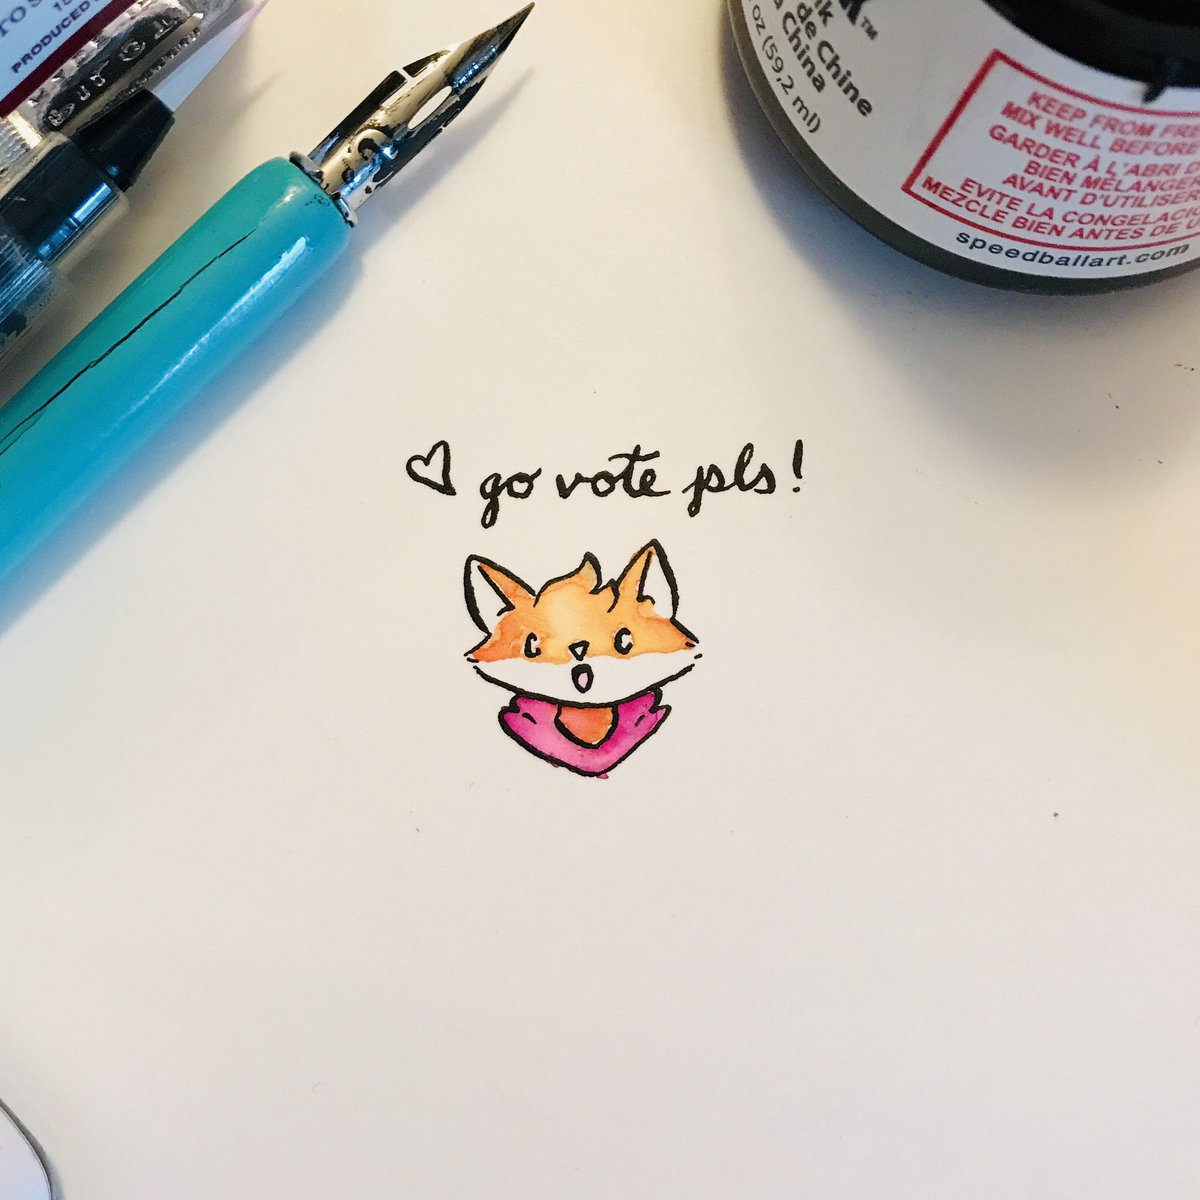 PRODUCED
de Chine
China
oz (59,2 ml)
KEEP FROM
MIX WELL BEFORE
GARDER À L'ABRI
BIEN MÉLANGER
AVANT D'UTILISER
EVITE LA
MEZCLE BIEN ANTES DE
speedballart.com
♡ go vote pls!